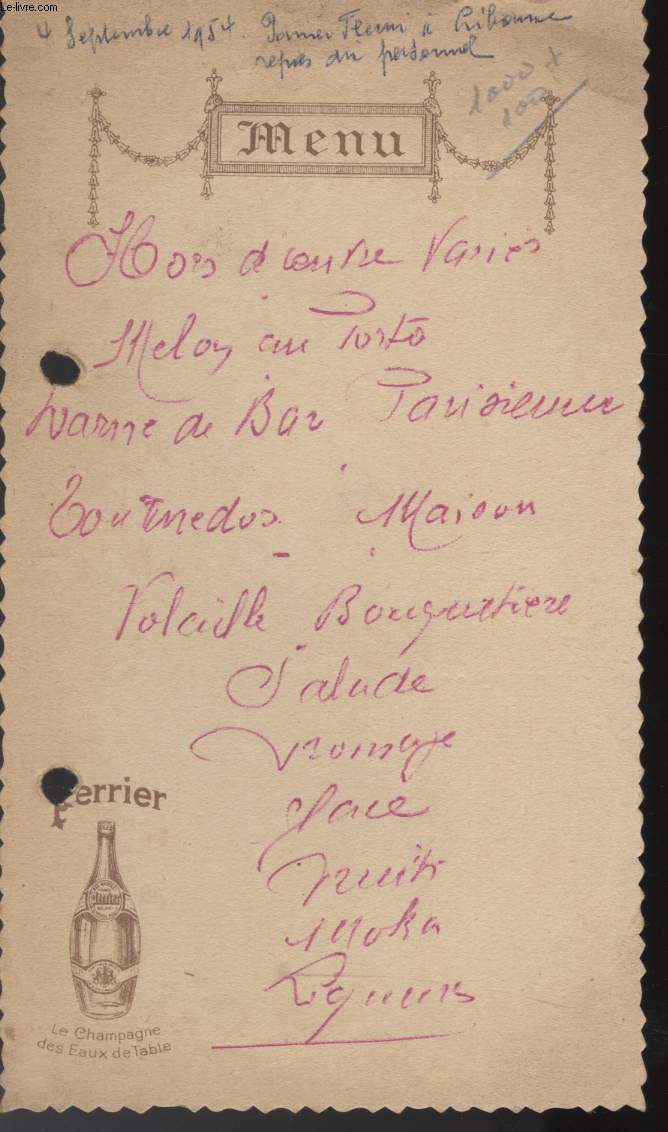 Le-livre.com
4 Septembre 1954. Panier Fleuri à Libourne
repas du personnel
1000 +
100
Menu
Hors d'œuvre Variés
Melon au Porto
Darne de Bar Parisienne
Tournedos Maison
Volaille Bouquetière
Salade
Fromage
Glace
Fruits
Moka
Liqueurs
Perrier
Perrier
Le Champagne
des Eaux de Table